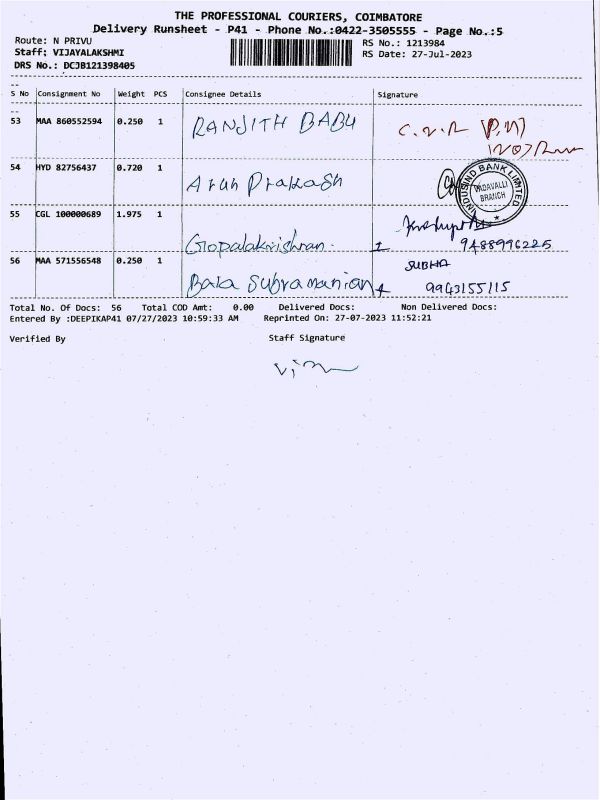 THE PROFESSIONAL COURIERS, COIMBATORE
Delivery Runsheet - P41 - Phone No.:0422-3505555 - Page No.:5
Route: N PRIVU
RS No.: 1213984
Staff: VIJAYALAKSHMI
RS Date: 27-Jul-2023
DRS No.: DCJB121398405
S No Consignment No Weight PCS Consignee Details Signature
53 MAA 860552594 0.250 1 RANJITH BABU
54 HYD 82756437 0.720 1 Arun Prakash
INDUSIND BANK LIMITED
VADAVALLI
BRANCH
55 CGL 100000689 1.975 1 Gopalakrishnan. 9488996225
56 MAA 571556548 0.250 1 Bala Subramanian SUBHA
9943155115
Total No. Of Docs: 56 Total COD Amt: 0.00 Delivered Docs: Non Delivered Docs:
Entered By :DEEPIKAP41 07/27/2023 10:59:33 AM Reprinted On: 27-07-2023 11:52:21
Verified By Staff Signature